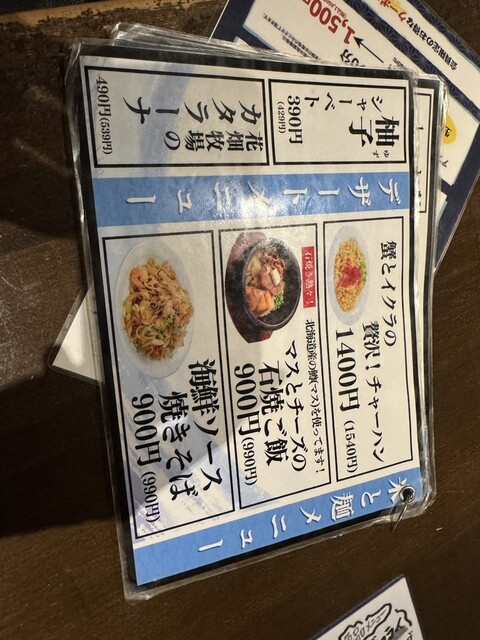 米と麺メニュー
蟹とイクラの
贅沢！チャーハン
1400円(1540円)
石焼き熱々！
北海道産の鱒(マス)を使ってます！
マスとチーズの
石焼ご飯
900円(990円)
海鮮ソース
焼きそば
900円(990円)
デザートメニュー
柚子
ゆず
シャーベット
390円
(429円)
花畑牧場の
カタラーナ
490円(539円)
1,500円